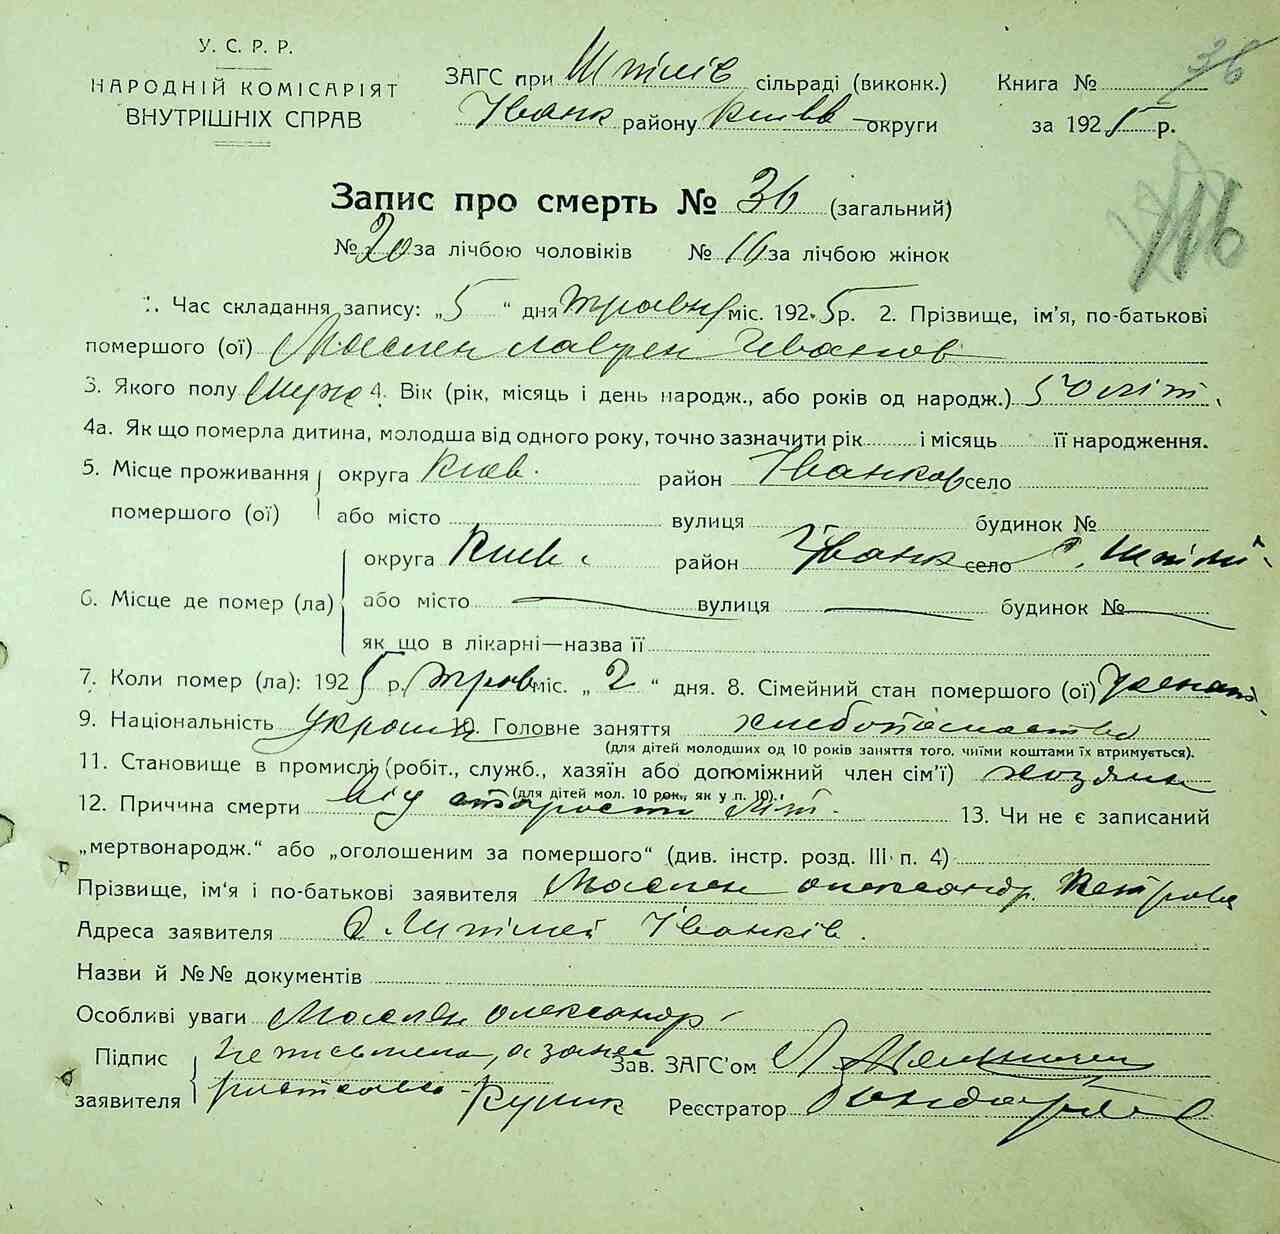 У. С. Р. Р.
НАРОДНІЙ КОМІСАРІЯТ
ВНУТРІШНІХ СПРАВ
ЗАГС при Шпілів сільраді (виконк.)
Іванк району Київ округи
Книга № 36
за 1925 р.
116
Запис про смерть № 36 (загальний)
№ 20 за лічбою чоловіків № 16 за лічбою жінок
1. Час складання запису: „5“ дня травня міс. 1925 р. 2. Прізвище, ім'я, по-батькові
помершого (ої) Маслен Лаврен Іванов
3. Якого полу муж 4. Вік (рік, місяць і день народж., або років од народж.) 50 літ.
4а. Як що померла дитина, молодша від одного року, точно зазначити рік і місяць її народження.
5. Місце проживання помершого (ої) округа Київ. район Іванков село
або місто вулиця будинок №
6. Місце де помер (ла) округа Київ. район Іванк село с. Шпілі
або місто — вулиця — будинок № —
як що в лікарні—назва її
7. Коли помер (ла): 1925 р. трав міс. „2“ дня. 8. Сімейний стан помершого (ої)
9. Національність україн 10. Головне заняття хлебопашество
(для дітей молодших од 10 років заняття того, чиїми коштами їх втримується).
11. Становище в промислі (робіт., служб., хазяїн або допоміжний член сім'ї) хозяин
(для дітей мол. 10 рок., як у п. 10).
12. Причина смерти від старости літ. 13. Чи не є записаний
„мертвонародж.“ або „оголошеним за помершого“ (див. інстр. розд. III п. 4)
Прізвище, ім'я і по-батькові заявителя Маслен Олександр. Петрова
Адреса заявителя с. Шпілей Іванків.
Назви й №№ документів
Особливі уваги Маслен Олександр
Підпис заявителя не письмена, а за нее Купик
Зав. ЗАГС'ом
Реєстратор